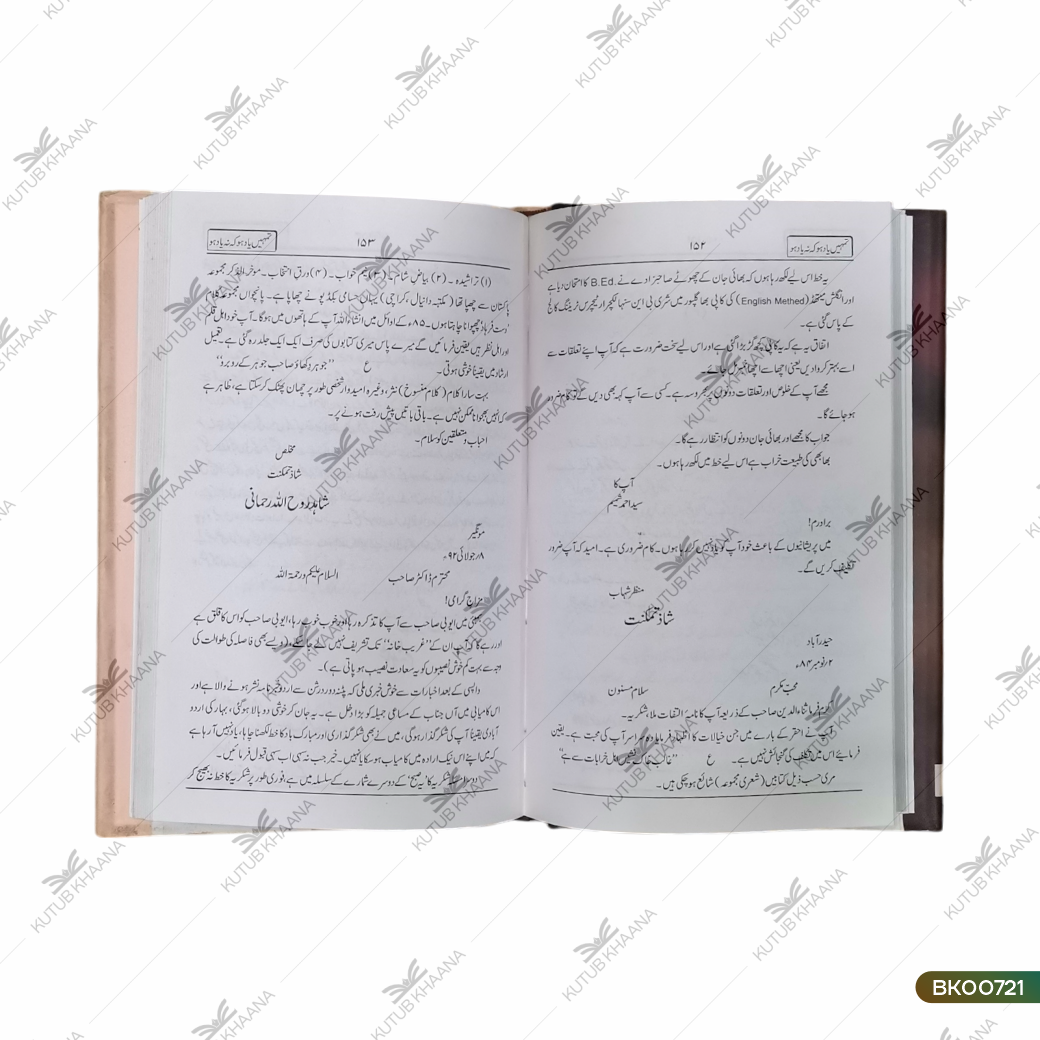 تمہیں یاد ہو کہ نہ یاد ہو
۱۵۲
یہ خط اس لیے لکھ رہا ہوں کہ بھائی جان کے چھوٹے صاحبزادے نے B.Ed. کا امتحان دیا ہے
اور انگلش میتھڈ (English Methed) کی کاپی بھاگلپور میں شری بی این سنہا لکچرار ٹیچرس ٹریننگ کالج
کے پاس گئی ہے۔
اتفاق یہ ہے کہ یہ کاپی کچھ گڑبڑا گئی ہے اور اس لیے سخت ضرورت ہے کہ آپ اپنے تعلقات سے
اسے بہتر کروادیں یعنی اچھا سے اچھا نمبر مل جائے۔
مجھے آپ کے خلوص اور تعلقات دونوں پر بھروسہ ہے۔ کسی سے آپ کہہ بھی دیں گے تو کام ضرور
ہو جائے گا۔
جواب کا مجھے اور بھائی جان دونوں کو انتظار رہے گا۔
بھابھی کی طبیعت خراب ہے اس لیے خط میں لکھ رہا ہوں۔
آپ کا
سید احمد شمیم
برادرم!
میں پریشانیوں کے باعث خود آپ کو یاد نہیں کر رہا ہوں۔ کام ضروری ہے۔ امید کہ آپ ضرور
تکلیف کریں گے۔
منظر شہاب
شاذ تمکنت
حیدرآباد
۲؍نومبر ۸۴ء
محبِّ مکرم
سلام مسنون
کرم فرما ثناء الدین صاحب کے ذریعہ آپ کا نامۂ التفات ملا، شکریہ۔
آپ نے احقر کے بارے میں جن خیالات کا اظہار فرمایا وہ سراسر آپ کی محبت ہے۔ یقین
فرمائیے اس میں تکلف کی گنجائش نہیں ہے۔ ع ”غالب خاک نشیں اہل خرابات سے ہے“
مری حسب ذیل کتابیں (شعری مجموعہ) شائع ہو چکی ہیں۔
تمہیں یاد ہو کہ نہ یاد ہو
۱۵۳
(۱) تراشیدہ۔ (۲) بیاض شام۔ (۳) نیم خواب۔ (۴) ورق انتخاب۔ موخر الذکر مجموعہ
پاکستان سے چھپا تھا (مکتبہ دانیال، کراچی) یہاں حسامی بکڈپو نے چھاپا ہے۔ پانچواں مجموعہ کلام
’دست فرہاد‘ چھپوانا چاہتا ہوں۔ ۸۵ء کے اوائل میں انشاءاللہ آپ کے ہاتھوں میں ہوگا۔ آپ خود اہل قلم
اور اہل نظر ہیں یقین فرمائیں گے میرے پاس میری کتابوں کی صرف ایک ایک جلد رہ گئی ہے۔ تعمیل
ارشاد میں یقیناً خوشی ہوتی۔ ع ”جوہر دکھاؤ صاحب جوہر کے روبرو“
بہت سارا کلام (کلام منسوخ) نثر، وغیرہ امیدوار شخصی طور پر چھان پھٹک کر سکتا ہے، ظاہر ہے
کہ انہیں بھجوانا ممکن نہیں ہے۔ باقی باتیں پیش رفت ہونے پر۔
احباب و متعلقین کو سلام۔
مخلص
شاذ تمکنت
شاہد روح اللہ رحمانی
مونگیر
۸؍جولائی ۹۲ء
محترم ڈاکٹر صاحب
السلام علیکم ورحمۃ اللہ
مزاج گرامی!
بمبئی میں ایوبی صاحب سے آپ کا تذکرہ رہا اور خوب خوب رہا، ایوبی صاحب کو اس کا قلق ہے
اور رہے گا کہ آپ ان کے ”غریب خانہ“ تک تشریف نہیں لے جا سکے۔ (ویسے بھی فاصلہ کی طوالت کی
وجہ سے بہت کم خوش نصیبوں کو یہ سعادت نصیب ہو پاتی ہے)۔
واپسی کے بعد اخبارات سے خوش خبری ملی کہ پٹنہ دوردرشن سے اردو خبرنامہ نشر ہونے والا ہے اور
اس کامیابی میں آں جناب کے مساعی جمیلہ کو بڑا دخل ہے۔ یہ جان کر خوشی دوبالا ہو گئی، بہار کی اردو
آبادی یقیناً آپ کی شکر گذار ہوگی، میں نے بھی شکر گذاری اور مبارک باد کا خط لکھنا چاہا، یاد نہیں آ رہا ہے
کہ میں اپنے اس نیک ارادہ میں کامیاب ہو سکا یا نہیں۔ خیر جب نہ سہی اب سہی قبول فرمائیں۔
دوسرا سلسلہ شکریہ کا ’’ کے دوسرے شمارے کے سلسلہ میں ہے، فوری طور پر شکریہ کا خط نہ بھیج کر
KUTUB KHAANA
BK00721